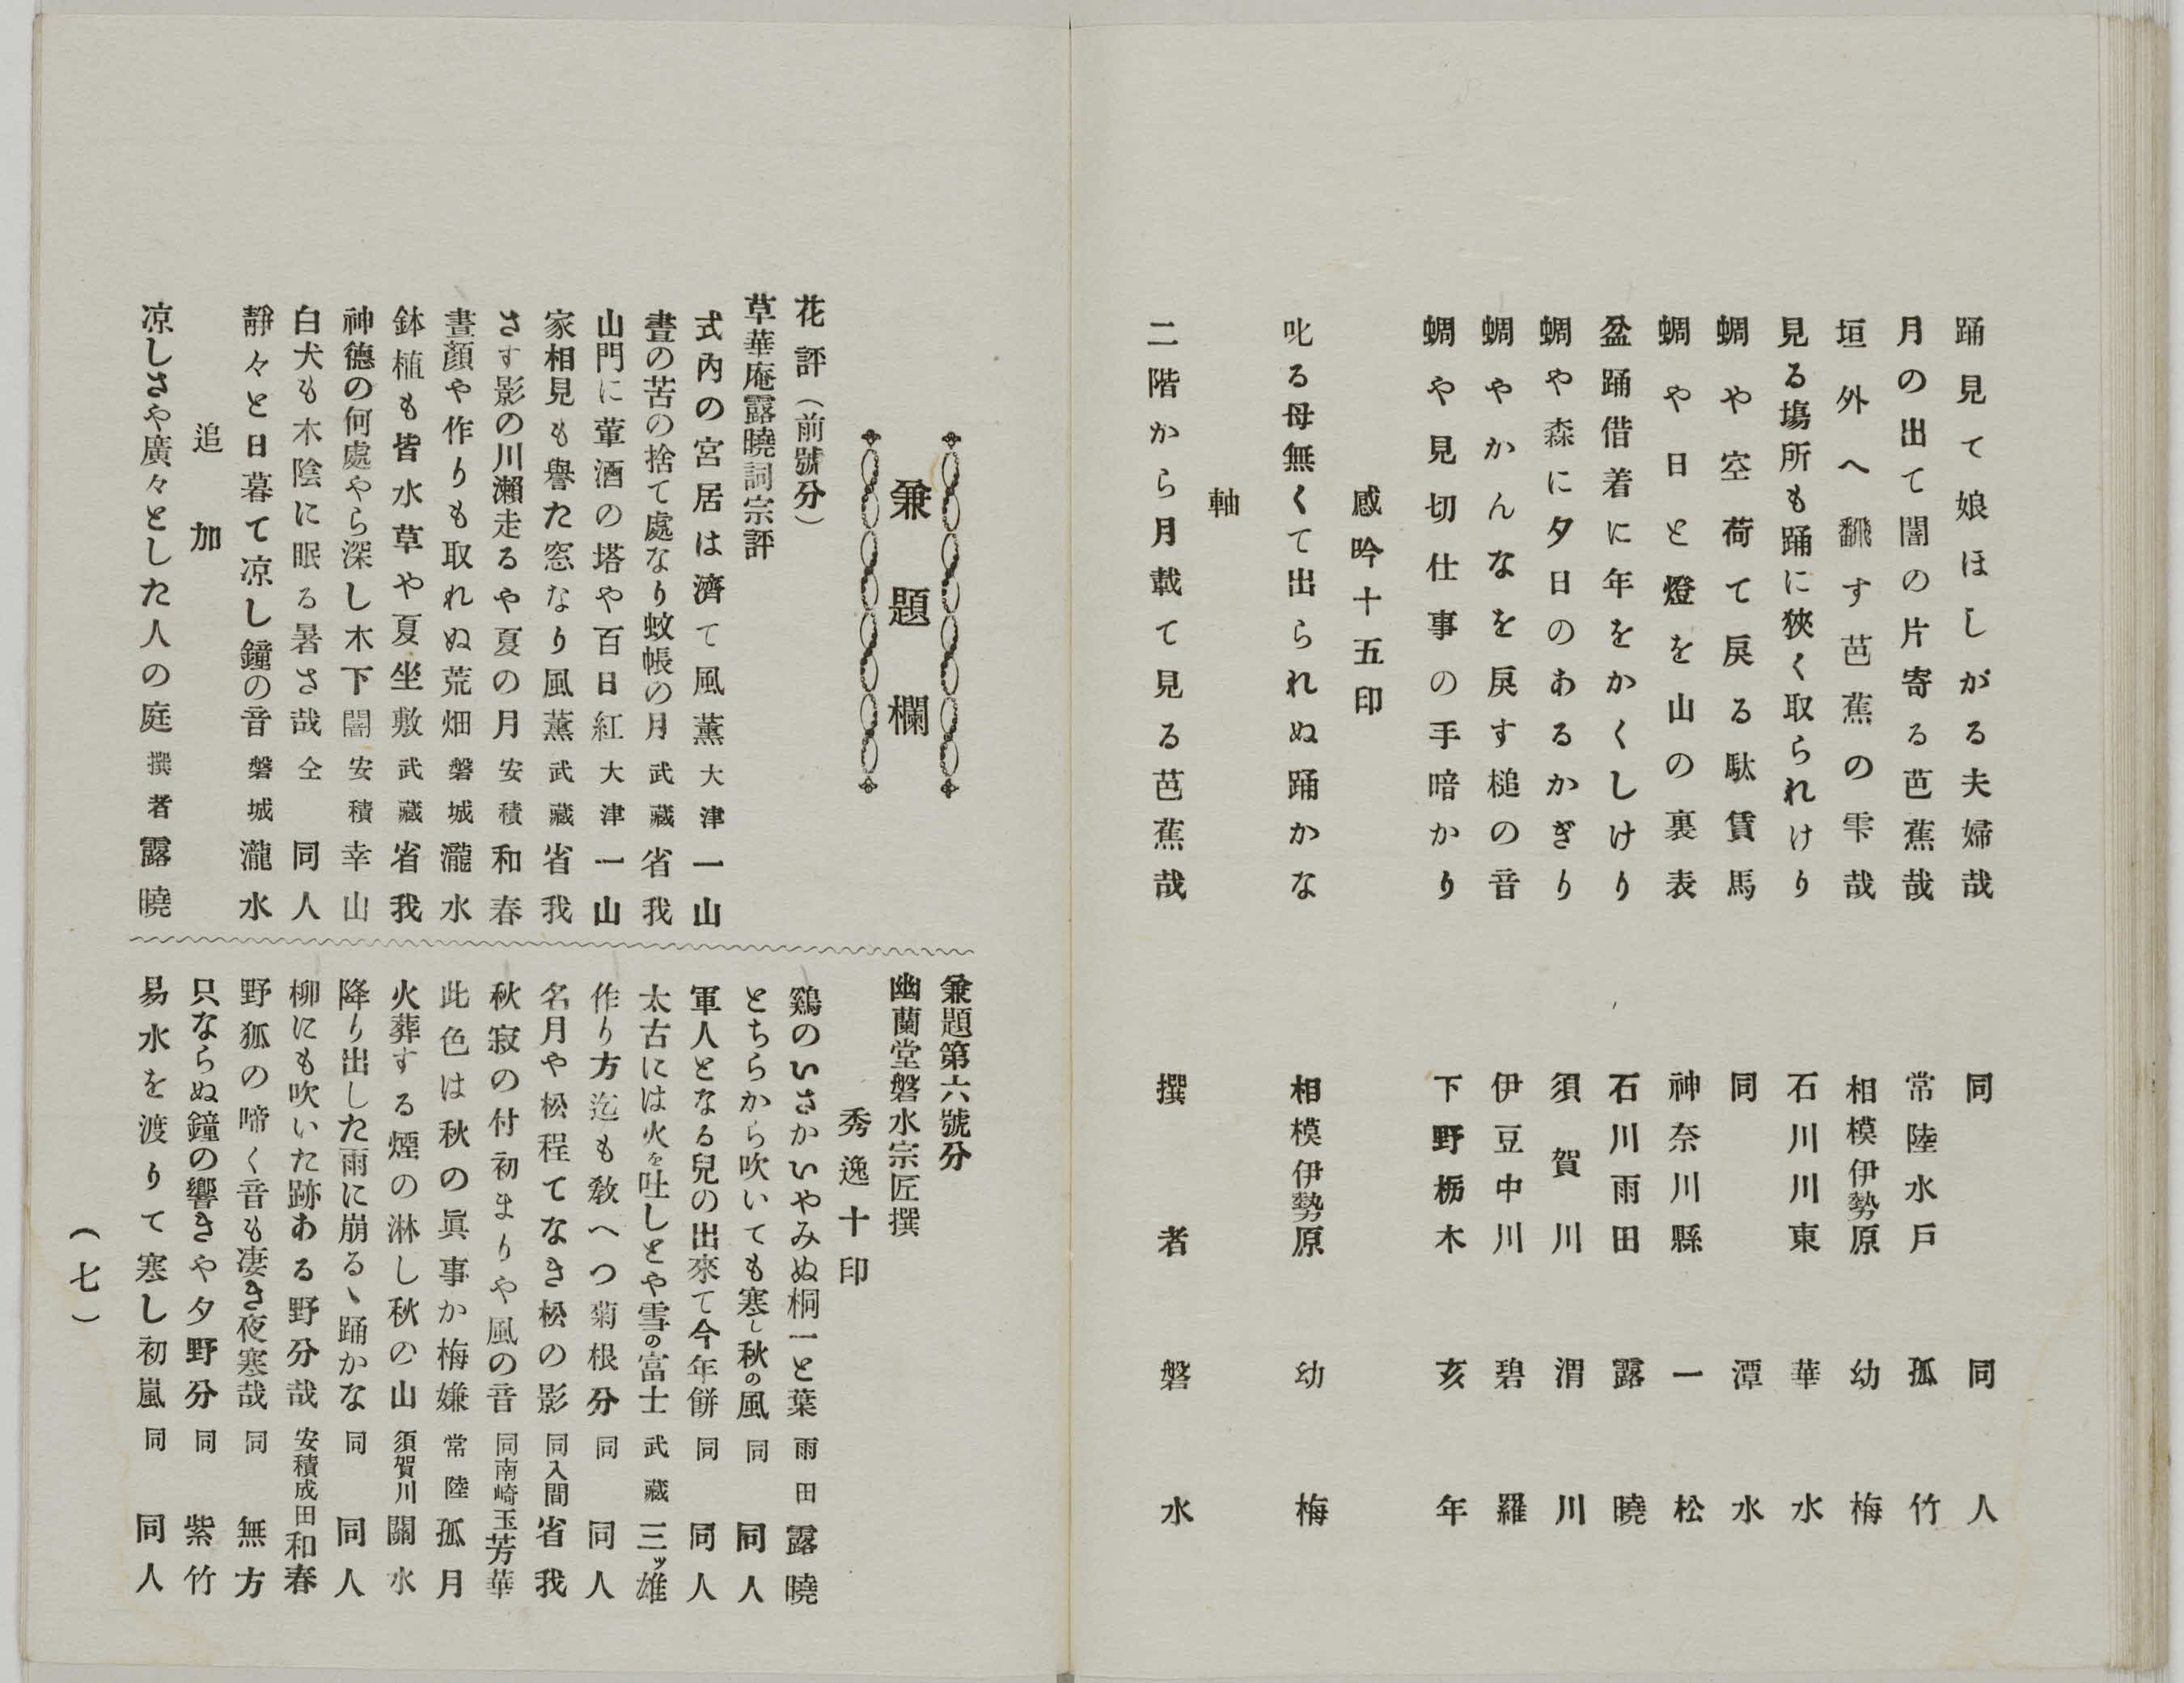 踊見て娘ほしがる夫婦哉 同 同人
月の出て闇の片寄る芭蕉哉 常陸水戸 孤竹
垣外へ飜す芭蕉の雫哉 相模伊勢原 幼梅
見る塲所も踊に狹く取られけり 石川川東 華水
蜩や空荷て戻る駄賃馬 同 潭水
蜩や日と燈を山の裏表 神奈川縣 一松
盆踊借着に年をかくしけり 石川雨田 露曉
蜩や森に夕日のあるかぎり 須賀川 渭川
蜩やかんなを戻す槌の音 伊豆中川 碧羅
蜩や見切仕事の手暗かり 下野栃木 亥年
感吟十五印
叱る母無くて出られぬ踊かな 相模伊勢原 幼梅
軸
二階から月載て見る芭蕉哉 撰者 磐水
兼題欄
花評（前號分）
草華庵露曉詞宗評
式內の宮居は濟て風薫 大津 一山
晝の苦の捨て處なり蚊帳の月 武藏 省我
山門に葷酒の塔や百日紅 大津 一山
家相見も譽た窓なり風薫 武藏 省我
さす影の川瀨走るや夏の月 安積 和春
晝顏や作りも取れぬ荒畑 磐城 瀧水
鉢植も皆水草や夏坐敷 武藏 省我
神德の何處やら深し木下闇 安積 幸山
白犬も木陰に眠る暑さ哉 仝 同人
靜々と日暮て凉し鐘の音 磐城 瀧水
追加
凉しさや廣々とした人の庭 撰者 露曉
兼題第六號分
幽蘭堂磐水宗匠撰
秀逸十印
鷄のいさかいやみぬ桐一と葉 雨田 露曉
とちらから吹いても寒し秋の風 同 同人
軍人となる兒の出來て今年餠 同 同人
太古には火を吐しとや雪の富士 武藏 三ッ雄
作り方迄も敎へつ菊根分 同 同人
名月や松程てなき松の影 同入間 省我
秋寂の付初まりや風の音 同南崎玉 芳華
此色は秋の眞事か梅嫌 常陸 孤月
火葬する煙の淋し秋の山 須賀川 關水
降り出した雨に崩るゝ踊かな 同 同人
柳にも吹いた跡ある野分哉 安積成田 和春
野狐の啼く音も凄き夜寒哉 同 無方
只ならぬ鐘の響きや夕野分 同 紫竹
易水を渡りて寒し初嵐 同 同人
（七）